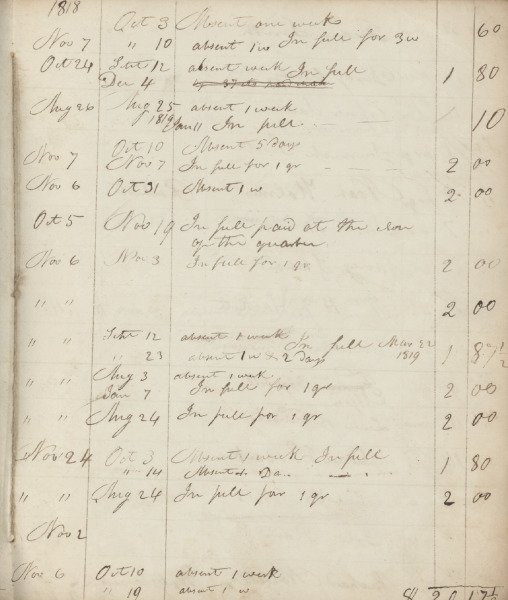 1818
Oct 3 Absent one week 60
Nov 7 " 10 absent 1 w In full for 3 w
Oct 24 Sept 12 absent week In full 1 80
Dec 4
Aug 26 Aug 25 absent 1 week
1819 Jan 11 In full 10
Oct 10 Absent 5 Days
Nov 7 Nov 7 In full for 1 qr 2 00
Nov 6 Oct 31 Absent 1 w 2 00
Oct 5 Nov 19 In full paid at the close
of the quarter
Nov 6 Nov 3 In full for 1 qr 2 00
" " 2 00
" " Sept 12 absent 1 week In full Mar 22
" 23 absent 1 w & 2 Days 1819 1 87 1/2
" " Aug 3 absent 1 week
Jan 7 In full for 1 qr 2 00
" " Aug 24 In full for 1 qr 2 00
Nov 24 Oct 3 Absent 1 week In full 1 80
" 14 Absent Da
" " Aug 24 In full for 1 qr 2 00
Nov 2
Nov 6 Oct 10 absent 1 week
" 19 absent 1 w $ 20 17 1/2